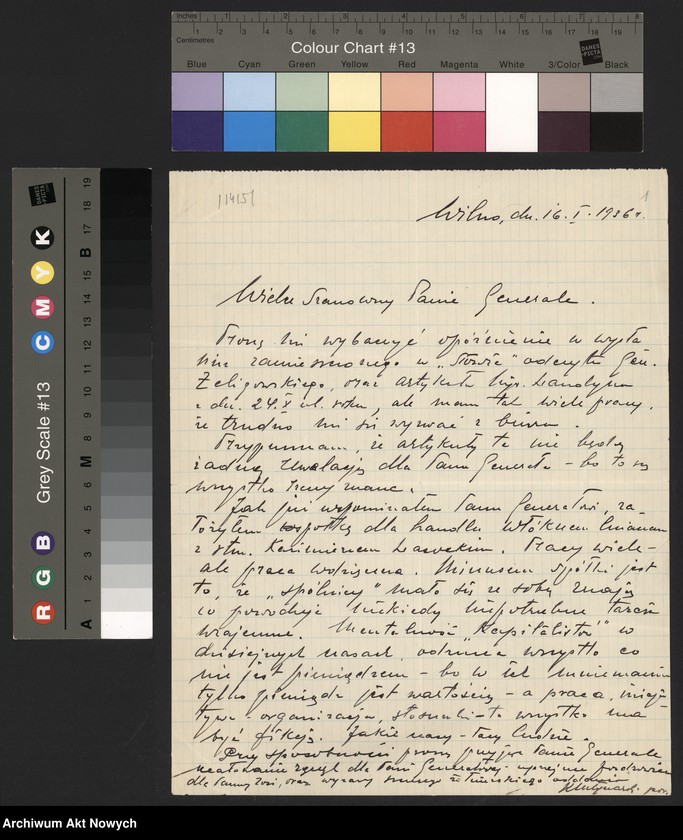 Inches 1 2 3 4 5 6 7 8
Centimetres 1 2 3 4 5 6 7 8 9 10 11 12 13 14 15 16 17 18 19
Colour Chart #13
DANES-PICTA
Blue Cyan Green Yellow Red Magenta White 3/Color Black
Grey Scale #13
DANES-PICTA
R G B C M Y K
A 1 2 3 4 5 6 M 8 9 10 11 12 13 14 15 B 17 18 19
1
Wilno, dn. 16. I. 1936 r.
Wielce Szanowny Panie Generale.
Proszę mi wybaczyć opóźnienie w wysła
niu zamieszczonego w „Słowie" odczytu Gen.
Żeligowskiego, oraz artykułu
z dn. 24. ub. roku, ale mam tak wiele pracy,
że trudno mi się wyrwać z biura.
Przypuszczam, że artykuły te nie będą
żadną rewelacją dla Pana Generała – bo to są
wszystko rzeczy znane.
Jak już wspominałem Panu Generałowi, za-
łożyłem spółkę dla handlu włóknem lnianem
z Kazimierzem. Pracy wiele –
ale praca wdzięczna. Minusem spółki jest
to, że „spólnicy" mało się ze sobą znają
co powoduje niekiedy niepotrzebne tarcia
wzajemne. Mentalność „Kapitalistów" w
dzisiejszych czasach, odrzuca wszystko co
nie jest pieniądzem – bo w ich mniemaniu
tylko pieniądz jest wartością – a praca, inicja
tywa – organizacja, stosunki – to wszystko ma
być fikcją. Jakie czasy – tacy ludzie.
Przy sposobności proszę przyjąć Panie Generale
dla Pani Generałowej, uprzejme pozdrowienia
dla Panny Zosi, oraz wyrazy
Archiwum Akt Nowych